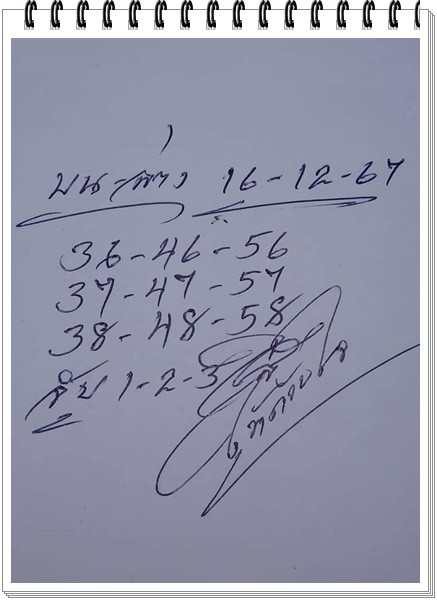 บน-ล่าง 16-12-67
36-46-56
37-47-57
38-48-58
1-2-3